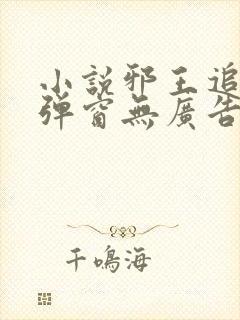 小説邪王追
彈窗無廣告
千鳴海